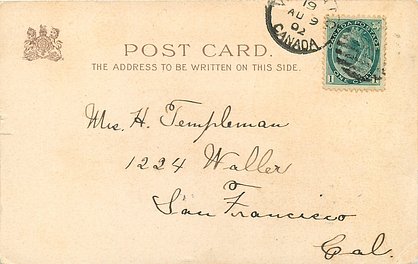 19
AU 9
02
CANADA
POST CARD.
THE ADDRESS TO BE WRITTEN ON THIS SIDE.
CANADA POSTAGE
Mrs. H. Templeman
1224 Waller
San Francisco
Cal.